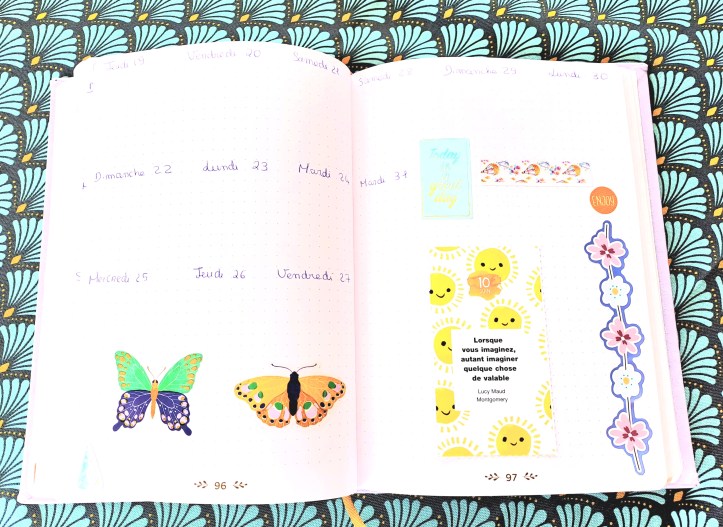 Jeudi 19 Vendredi 20 Samedi 21
Dimanche 22 Lundi 23 Mardi 24
Mercredi 25 Jeudi 26 Vendredi 27
96
Samedi 28 Dimanche 29 Lundi 30
Mardi 31
today
is a
good
day
ENJOY
10
Lorsque
vous imaginez,
autant imaginer
quelque chose
de valable
Lucy Maud
Montgomery
97